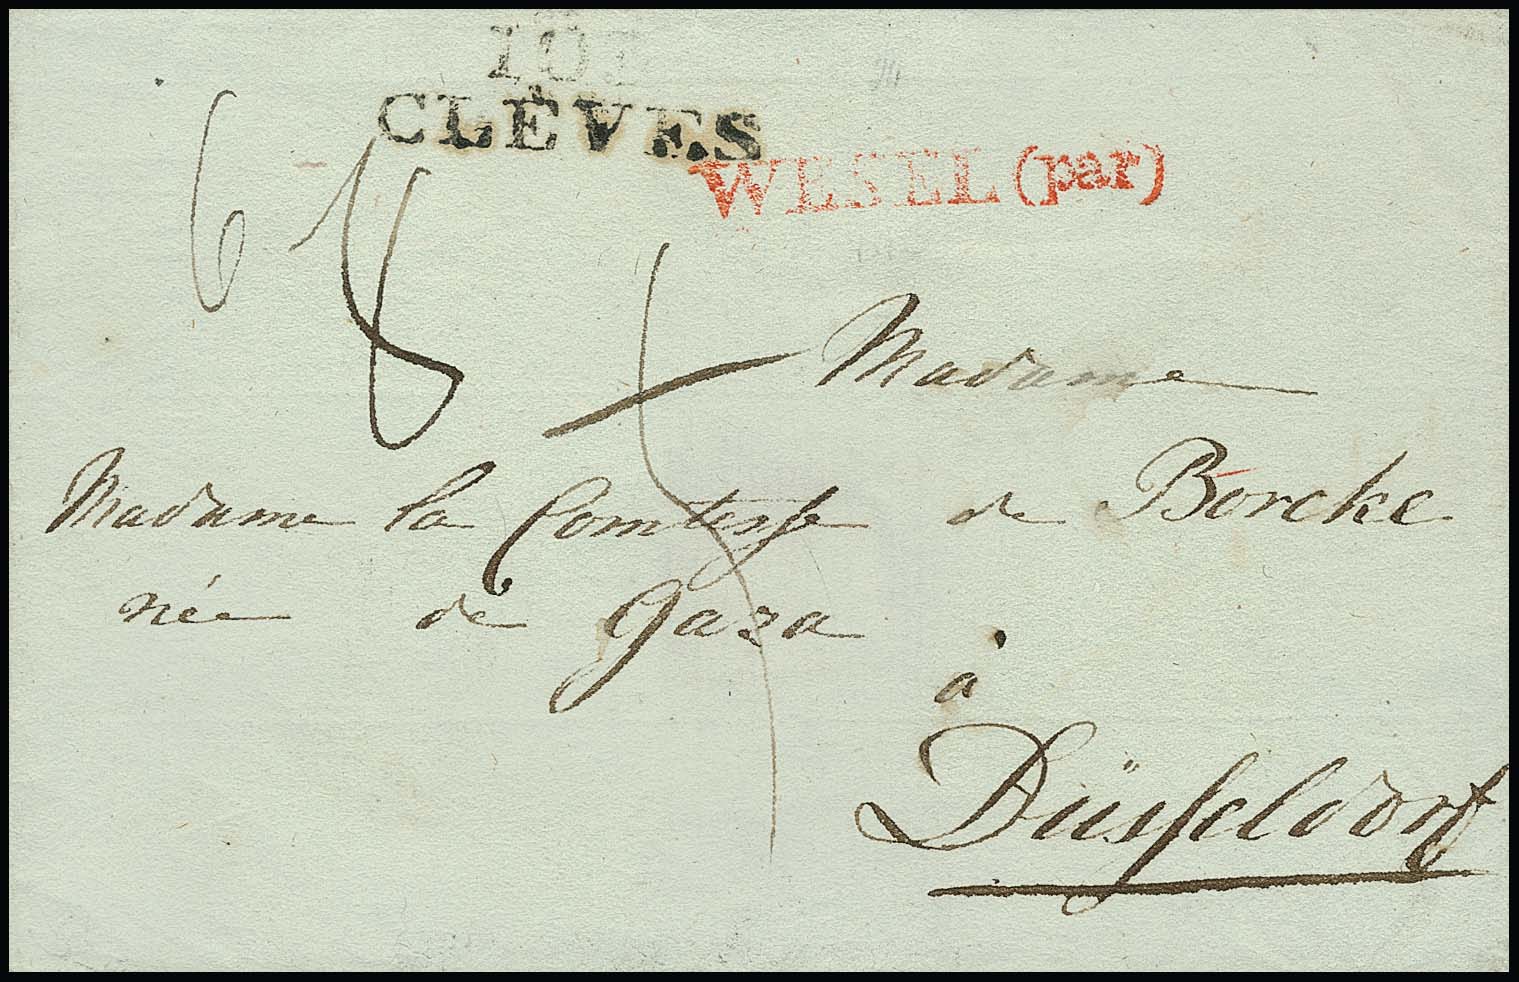 CLÈVES
WESEL (par)
6
Madame
Madame la Comtesse de Borcke
née de Gaza
à
Düsseldorf